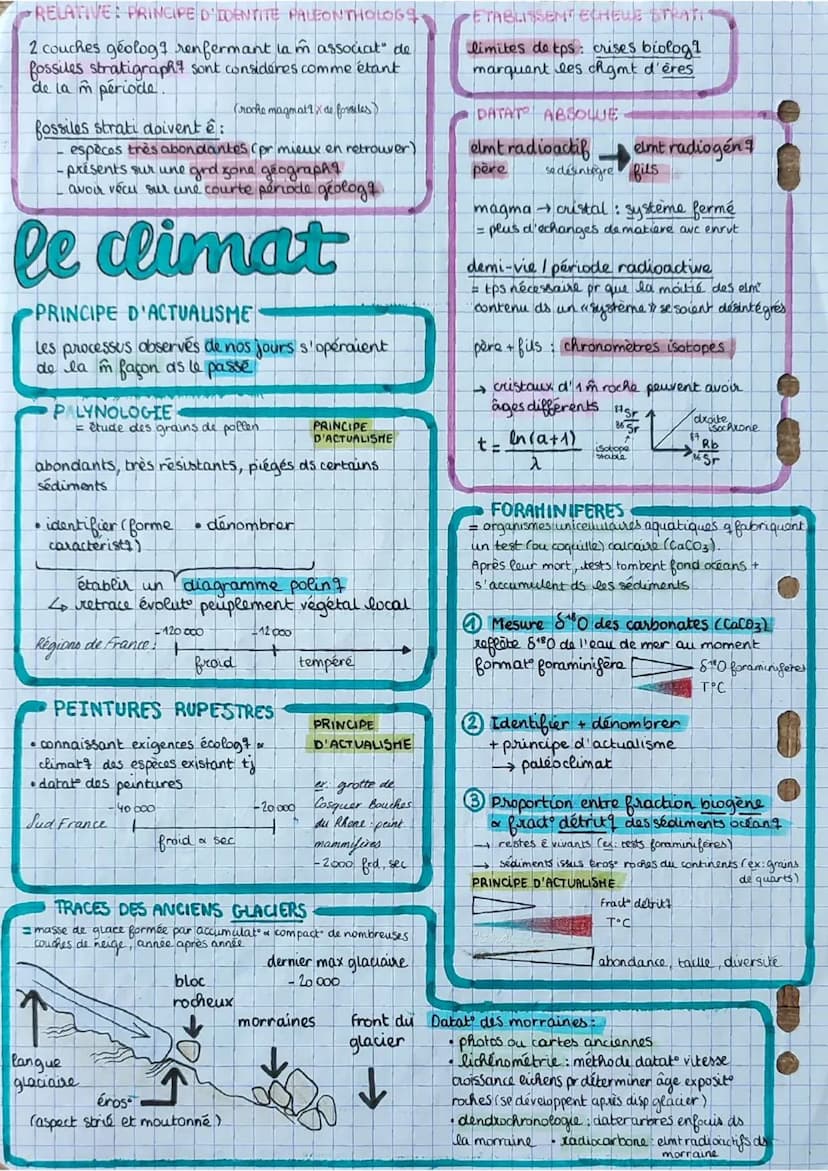 RELATIVE : PRINCIPE D'IDENTITÉ PALEONTHOLOGq
2 couches géologq renfermant la m̂ associat° de
fossiles stratigraphq sont considérés comme étant
de la m̂ période.
(roche magmatq X de fossiles)
fossiles strati doivent ê :
- espèces très abondantes (pr mieux en retrouver)
- présents sur une grd zone géographq
- avoir vécu sur une courte période géologq
ETABLISSEMT ECHELLE STRATI
limites de tps : crises biologq
marquant les chgmt d'ères
DATAT° ABSOLUE
elmt radioactif → elmt radiogénq
père se désintègre fils
magma → cristal : système fermé
= plus d'echanges de matière avc envrt
demi-vie / période radioactive
= tps nécessaire pr que la moitié des elmt
contenu ds un « système » se soient désintégrés
père + fils : chronomètres isotopes
→ cristaux d'1 m̂ roche peuvent avoir
âges différents
87Sr
86Sr
isotope stable
droite isochrone
87Rb
86Sr
t = ln(a+1)
λ
le climat
PRINCIPE D'ACTUALISME
Les processus observés de nos jours s'opéraient
de la m̂ façon ds le passé
PALYNOLOGIE
= étude des grains de pollen
PRINCIPE
D'ACTUALISME
abondants, très résistants, piégés ds certains
sédiments
• identifier (forme • dénombrer
caractéristq)
établir un diagramme polinq
↳ retrace évolut° peuplement végétal local
Régions de France : -120 000 -12 000
froid tempéré
PEINTURES RUPESTRES
PRINCIPE
D'ACTUALISME
• connaissant exigences écologq &
climatq des espèces existant tj
• datat° des peintures
Sud France -40 000 -20 000
froid & sec
ex. grotte de
Cosquer Bouches
du Rhone : peint
mammifères
-2000 frd, sec
FORAMINIFERES
= organismes unicellulaires aquatiques q fabriquent
un test (ou coquille) calcaire (CaCO3).
Après leur mort, tests tombent fond océans +
s'accumulent ds les sédiments
① Mesure δ18O des carbonates (CaCO3)
reflète δ18O de l'eau de mer au moment
format° foraminifère δ18O foraminifères
T°C
② Identifier + dénombrer
+ principe d'actualisme
→ paléoclimat
③ Proportion entre fraction biogène
& fract° détritq des sédiments océanq
→ restes ê vivants (ex: tests foraminifères)
→ sédiments issus éros° roches du continents (ex: grains
de quarts)
PRINCIPE D'ACTUALISME
Fract° détritq
T°C
abondance, taille, diversité
TRACES DES ANCIENS GLACIERS
= masse de glace formée par accumulat° & compact° de nombreuses
couches de neige, année après année
dernier max glaciaire
-20 000
bloc
rocheux
morraines
front du
glacier
langue
glaciaire
éros°
(aspect strié et moutonné)
Datat° des morraines :
• photos ou cartes anciennes
• lichénométrie : méthode datat° vitesse
croissance lichens pr déterminer âge exposit°
roches (se développent après disp glacier)
• dendrochronologie : dater arbres enfouis ds
la morraine • radiocarbone : elmt radioactifs ds
morraine